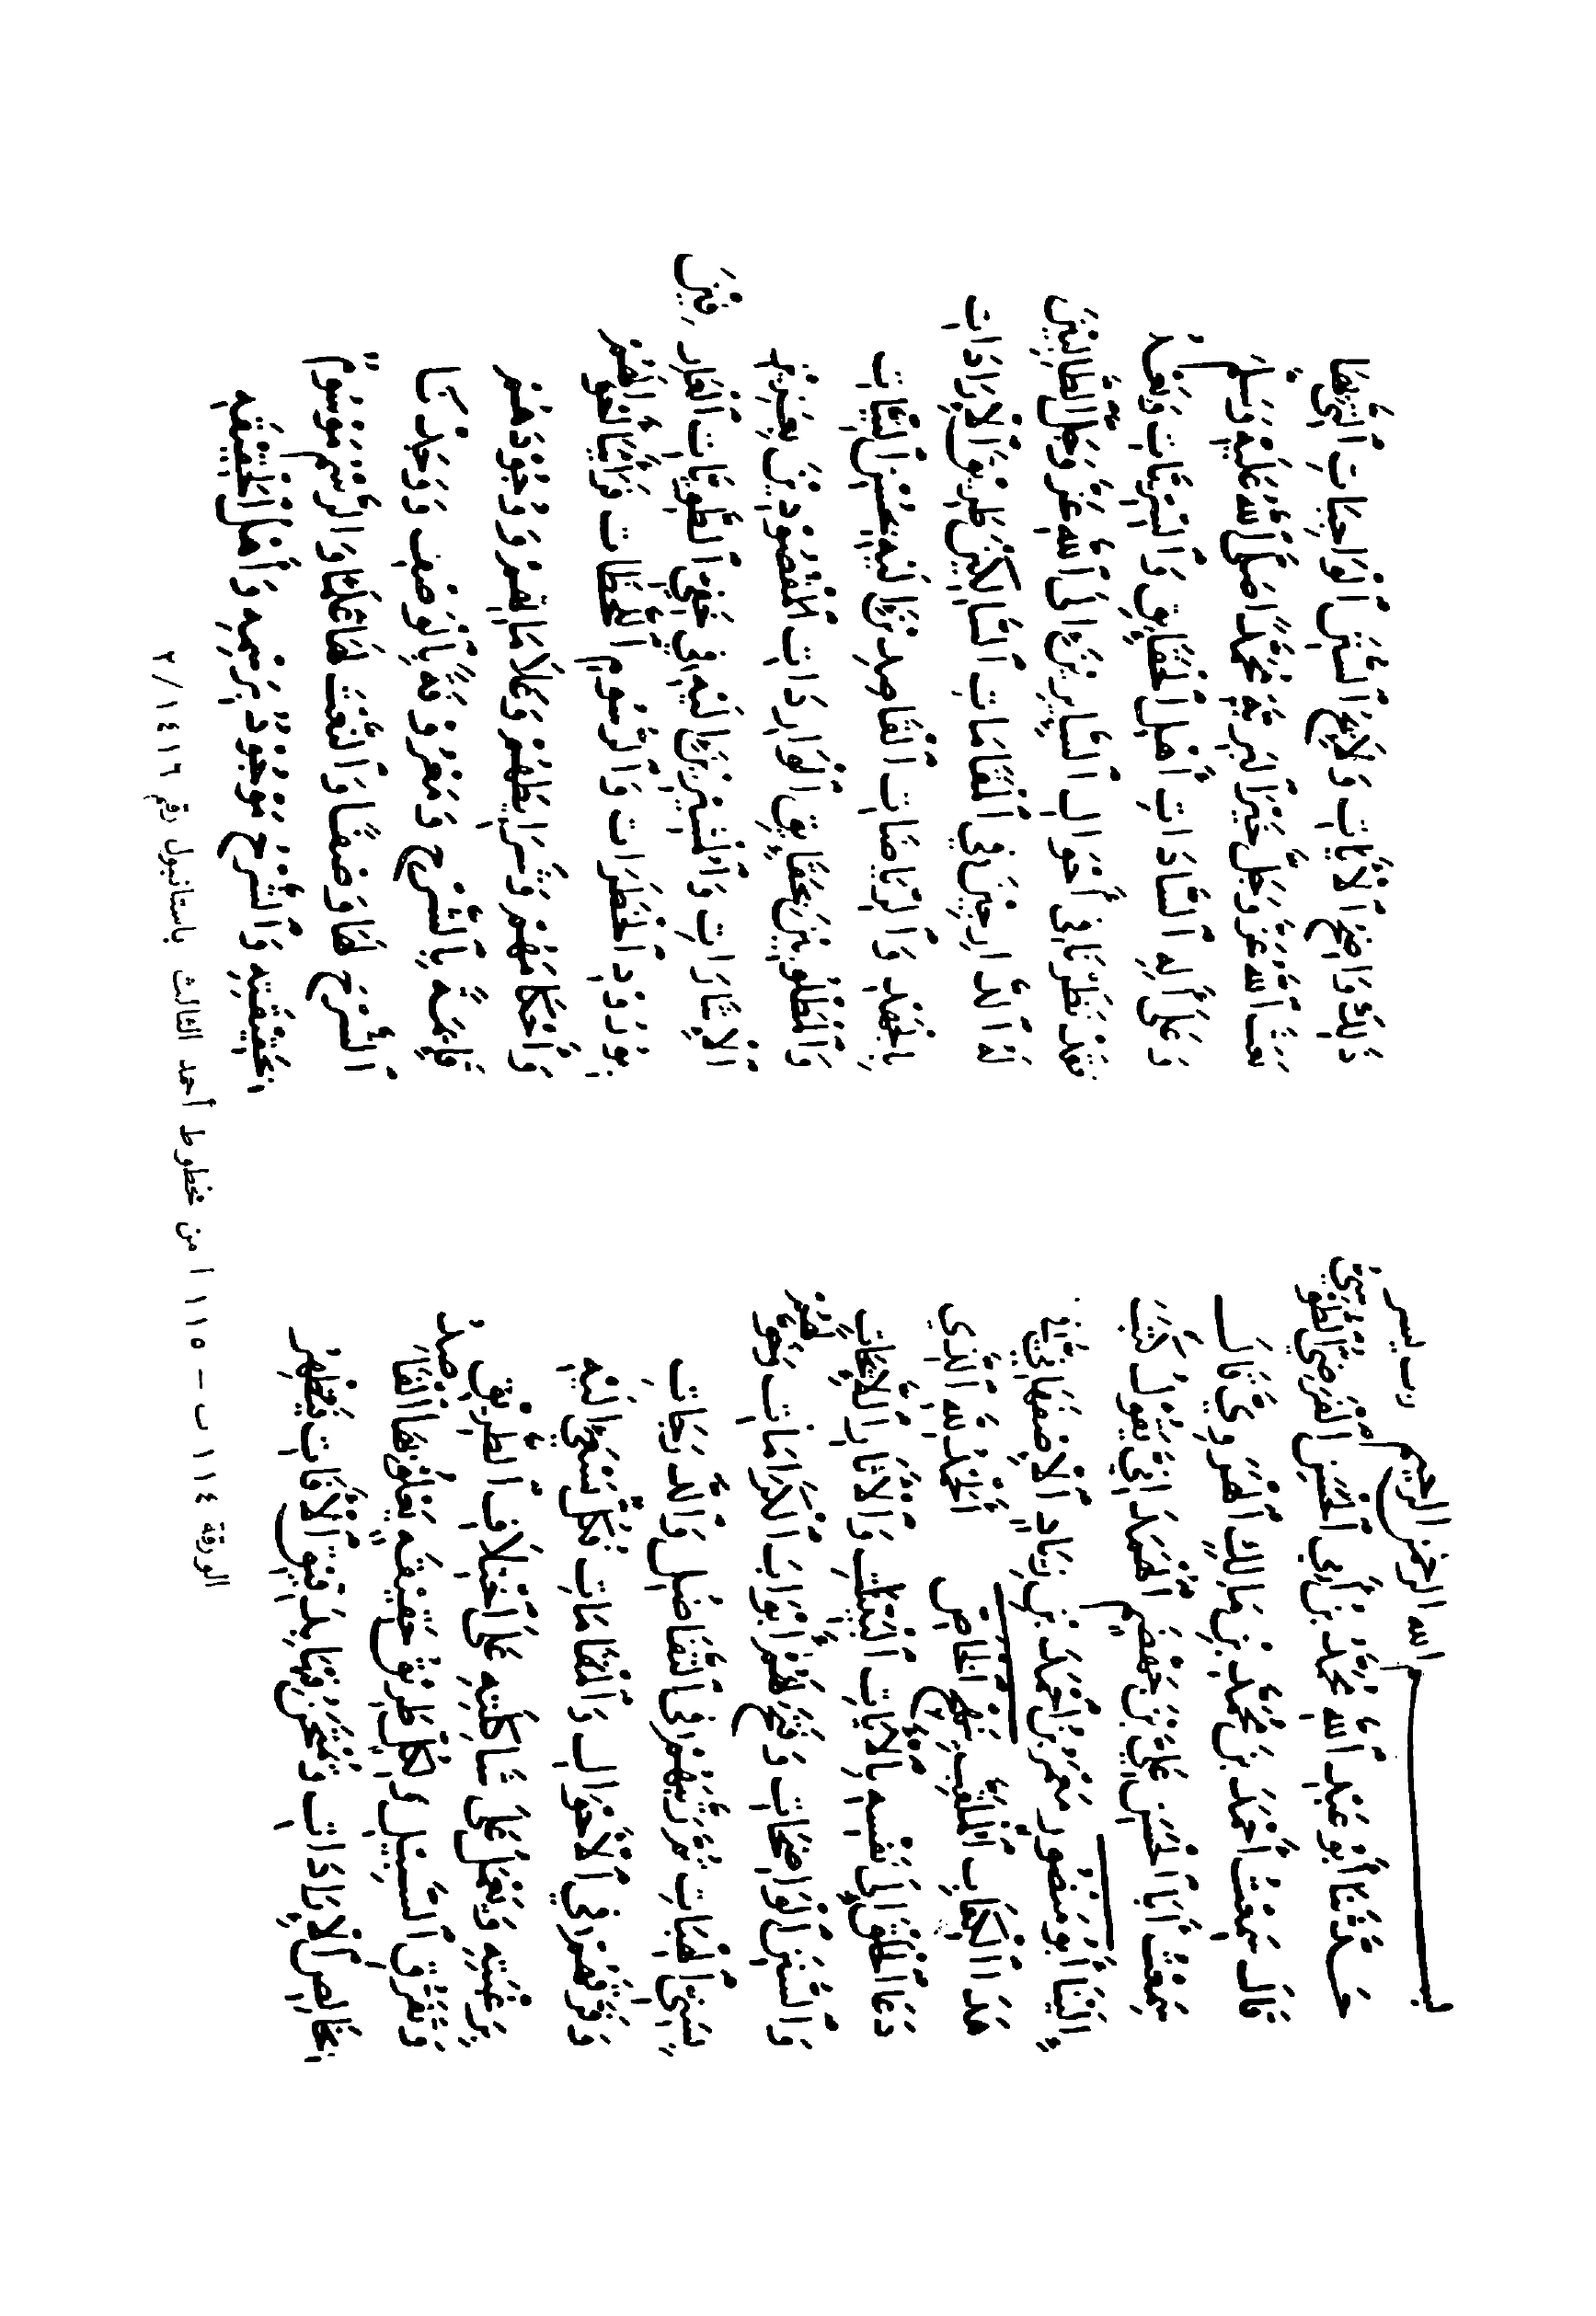 بسم الله الرحمن الرحيم رب يسر
حَدَّثَنَا أَبُو عَبْدِ اللهِ مُحَمَّدُ بْنُ أَبِي الْحَسَنِ الْفَرَضِيُّ الطُّوسِيُّ
قَالَ سَمِعْتُ أَحْمَدَ بْنَ مُحَمَّدِ بْنِ مَالِكٍ الْهَرَوِيَّ قَالَ
سَمِعْتُ أَبَا الْحَسَنِ عَلِيَّ بْنَ جَهْضَمٍ الْهَمَدَانِيَّ يَقُولُ كَتَبَ
إِلَيْنَا أَبُو مَنْصُورٍ مَعْمَرُ بْنُ أَحْمَدَ بْنِ زِيَادٍ الْإِصْفَهَانِيُّ
هَذَا الْكِتَابَ الْمُلَقَّبَ بِنَهْجِ الْخَاصِّ الْحَمْدُ لِلَّهِ الَّذِي
دَعَا الْخَلْقَ إِلَى نَفْسِهِ بِالْآيَاتِ الْبَيِّنَاتِ وَالْآثَارِ اللَّائِحَاتِ
وَالسُّنَنِ الْوَاضِحَاتِ وَفَتَحَ لَهُمْ أَبْوَابَ الْكَرَامَاتِ وَهَوَّ لَهُمْ
سَنِيَّ الْهِبَاتِ ثُمَّ رَتَّبَهُمْ فِي التَّفَاضُلِ وَالدَّرَجَاتِ
وَفَرَّقَهُمْ فِي الْأَحْوَالِ وَالْمَقَامَاتِ فَكُلٌّ يَسْعَى إِلَيْهِ
بِرَغْبَتِهِ وَيَعْمَلُ عَلَى شَاكِلَتِهِ عَلَى اخْتِلَافِ الطَّرِيقِ
وَتَفَرُّقِ السَّبِيلِ وَلِكُلِّ طَرِيقٍ حَقِيقَةٌ يَعْلُوهَا الْقَاصِدُ
بِخَالِصِ الْإِرَادَاتِ وَنَحْنُ فِيمَا بَيْنَ دَقِيقِ الْآفَاتِ فَيَظْهَرُ
ذَلِكَ وَاضِحُ الْآيَاتِ وَلَائِحُ السُّنَنِ الْوَاجِبَاتِ الَّتِي بِهَا
بَعَثَ اللهُ عَزَّ وَجَلَّ خَيْرَ الْبَرِيَّةِ مُحَمَّدًا صَلَّى اللهُ عَلَيْهِ وَسَلَّمَ
وَعَلَى آلِهِ السَّادَاتِ أَهْلِ الْحَقَائِقِ وَالْبَرِيَّاتِ وَبَعْدُ
فَقَدْ نَظَرْنَا فِي أَحْوَالِ السَّائِرِينَ إِلَى اللهِ عَزَّ وَجَلَّ الطَّالِبِينَ
لَهُ الدَّارِجِينَ فِي الْمَقَامَاتِ السَّالِكِينَ طَرِيقَ الْإِرَادَاتِ
بِالْجَهْدِ وَالرِّيَاضَاتِ الْقَاصِدِينَ إِلَيْهِ بِحُسْنِ النِّيَّاتِ
وَالْمَطْلُوبِينَ بِحَقَائِقِ الْوَارِدَاتِ الْمَقْصُودِينَ بِعَزِيزِ
الْإِشَارَاتِ وَالْمُشِيرِينَ إِلَيْهِ فِي خَفِيِّ الطَّوِيَّاتِ الْعَارِفِينَ
بِوُرُودِ الْخَطَرَاتِ وَالرُّسُومِ اللَّحَظَاتِ فَرَأَيْنَا لِنَحْوِ أَهْلِهِمْ
وَأَحْكَامِهِمْ وَشَرَائِطِهِمْ وَعَلَامَاتِهِمْ وَوُجُودِهِمْ
قَائِمَةً بِالشَّرْحِ وَمَعْرُوفَةً بِالْوَصْفِ وَوَجَدْنَا
الشَّرْحَ لَهَا وَصْفًا وَالنَّعْتَ لَهَا عِلْمًا وَالرَّسْمَ مَوْسُومٌ
بِحَقِيقَتِهِ وَالشَّرْحُ مَوْجُودٌ بِرَسْمِهِ وَأَهْلُ الْحَقِيقَةِ
الورقة ١١٤ ب - ١١٥ أ من مخطوط أحمد الثالث باستانبول رقم ١٤١٦ / ٢